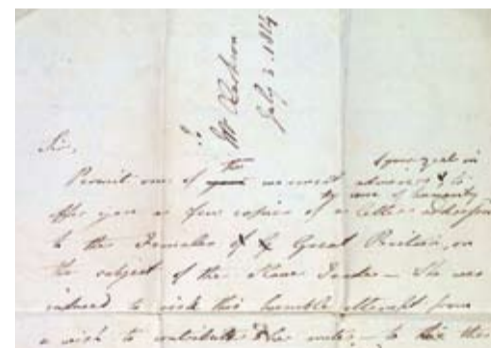 To
Mr
July 2. 1814
Sir,
Permit one of the warmest admirers of
your zeal in
the cause of humanity
offer you a few copies of a letter
to the Females of Great Britain, on
the subject of the Slave Trade – She was
induced to risk this humble attempt from
a wish to contribute her mite – to this